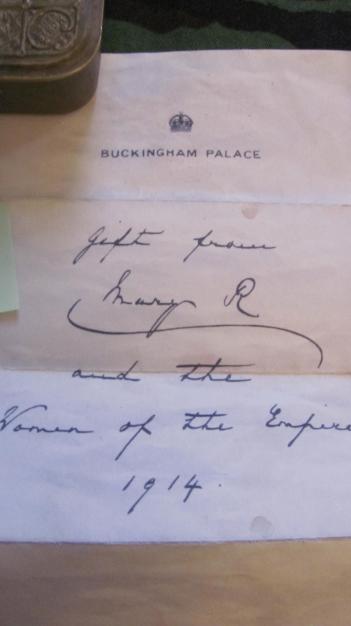 BUCKINGHAM PALACE
gift from
Mary R
and the
Women of the Empire
1914.